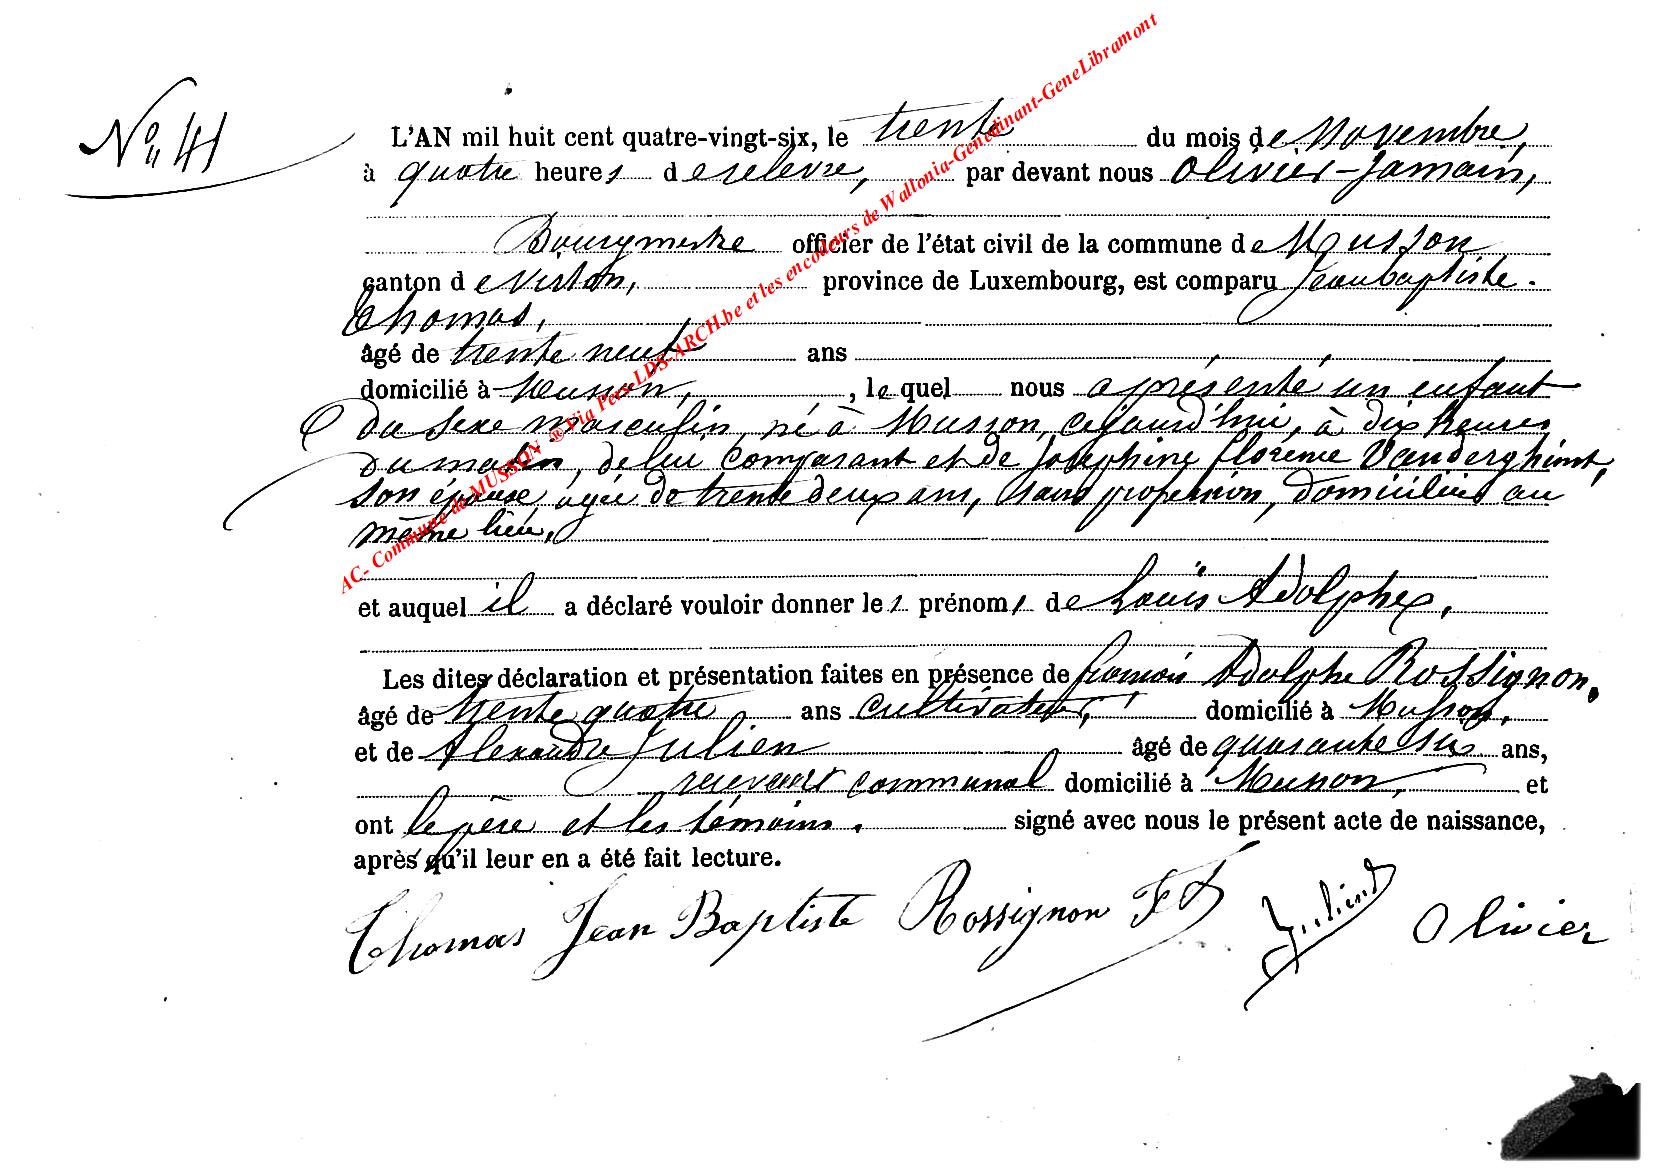 N° 41
L'AN mil huit cent quatre-vingt-six, le trente du mois de Novembre,
à quatre heures de relevée, par devant nous Olivier-Jamain,
Bourgmestre officier de l'état civil de la commune de Musson
canton de Virton, province de Luxembourg, est comparu Jean baptiste
Thomas,
âgé de trente neuf ans
domicilié à Musson, , lequel nous a présenté un enfant
du sexe masculin, né à Musson, cejourd'hui, à dix heures
du matin, de lui comparant et de Joséphine florence Vanderghinst,
son épouse, âgée de trente deux ans, sans profession, domiciliés au
même lieu,
et auquel il a déclaré vouloir donner les prénoms de Louis Adolphe,
Les dites déclaration et présentation faites en présence de françois Adolphe Rossignon,
âgé de trente quatre ans cultivateur, domicilié à Musson,
et de Alexandre Julien âgé de quarante six ans,
receveur communal domicilié à Musson, et
ont le père et les témoins. signé avec nous le présent acte de naissance,
après qu'il leur en a été fait lecture.
Thomas Jean Baptiste Rossignon F A Julien Olivier
AC- Commune de MUSSON ® Via Pers LDS-ARCH.be et les encodeurs de Wallonia-Genedinant-GeneLibramont